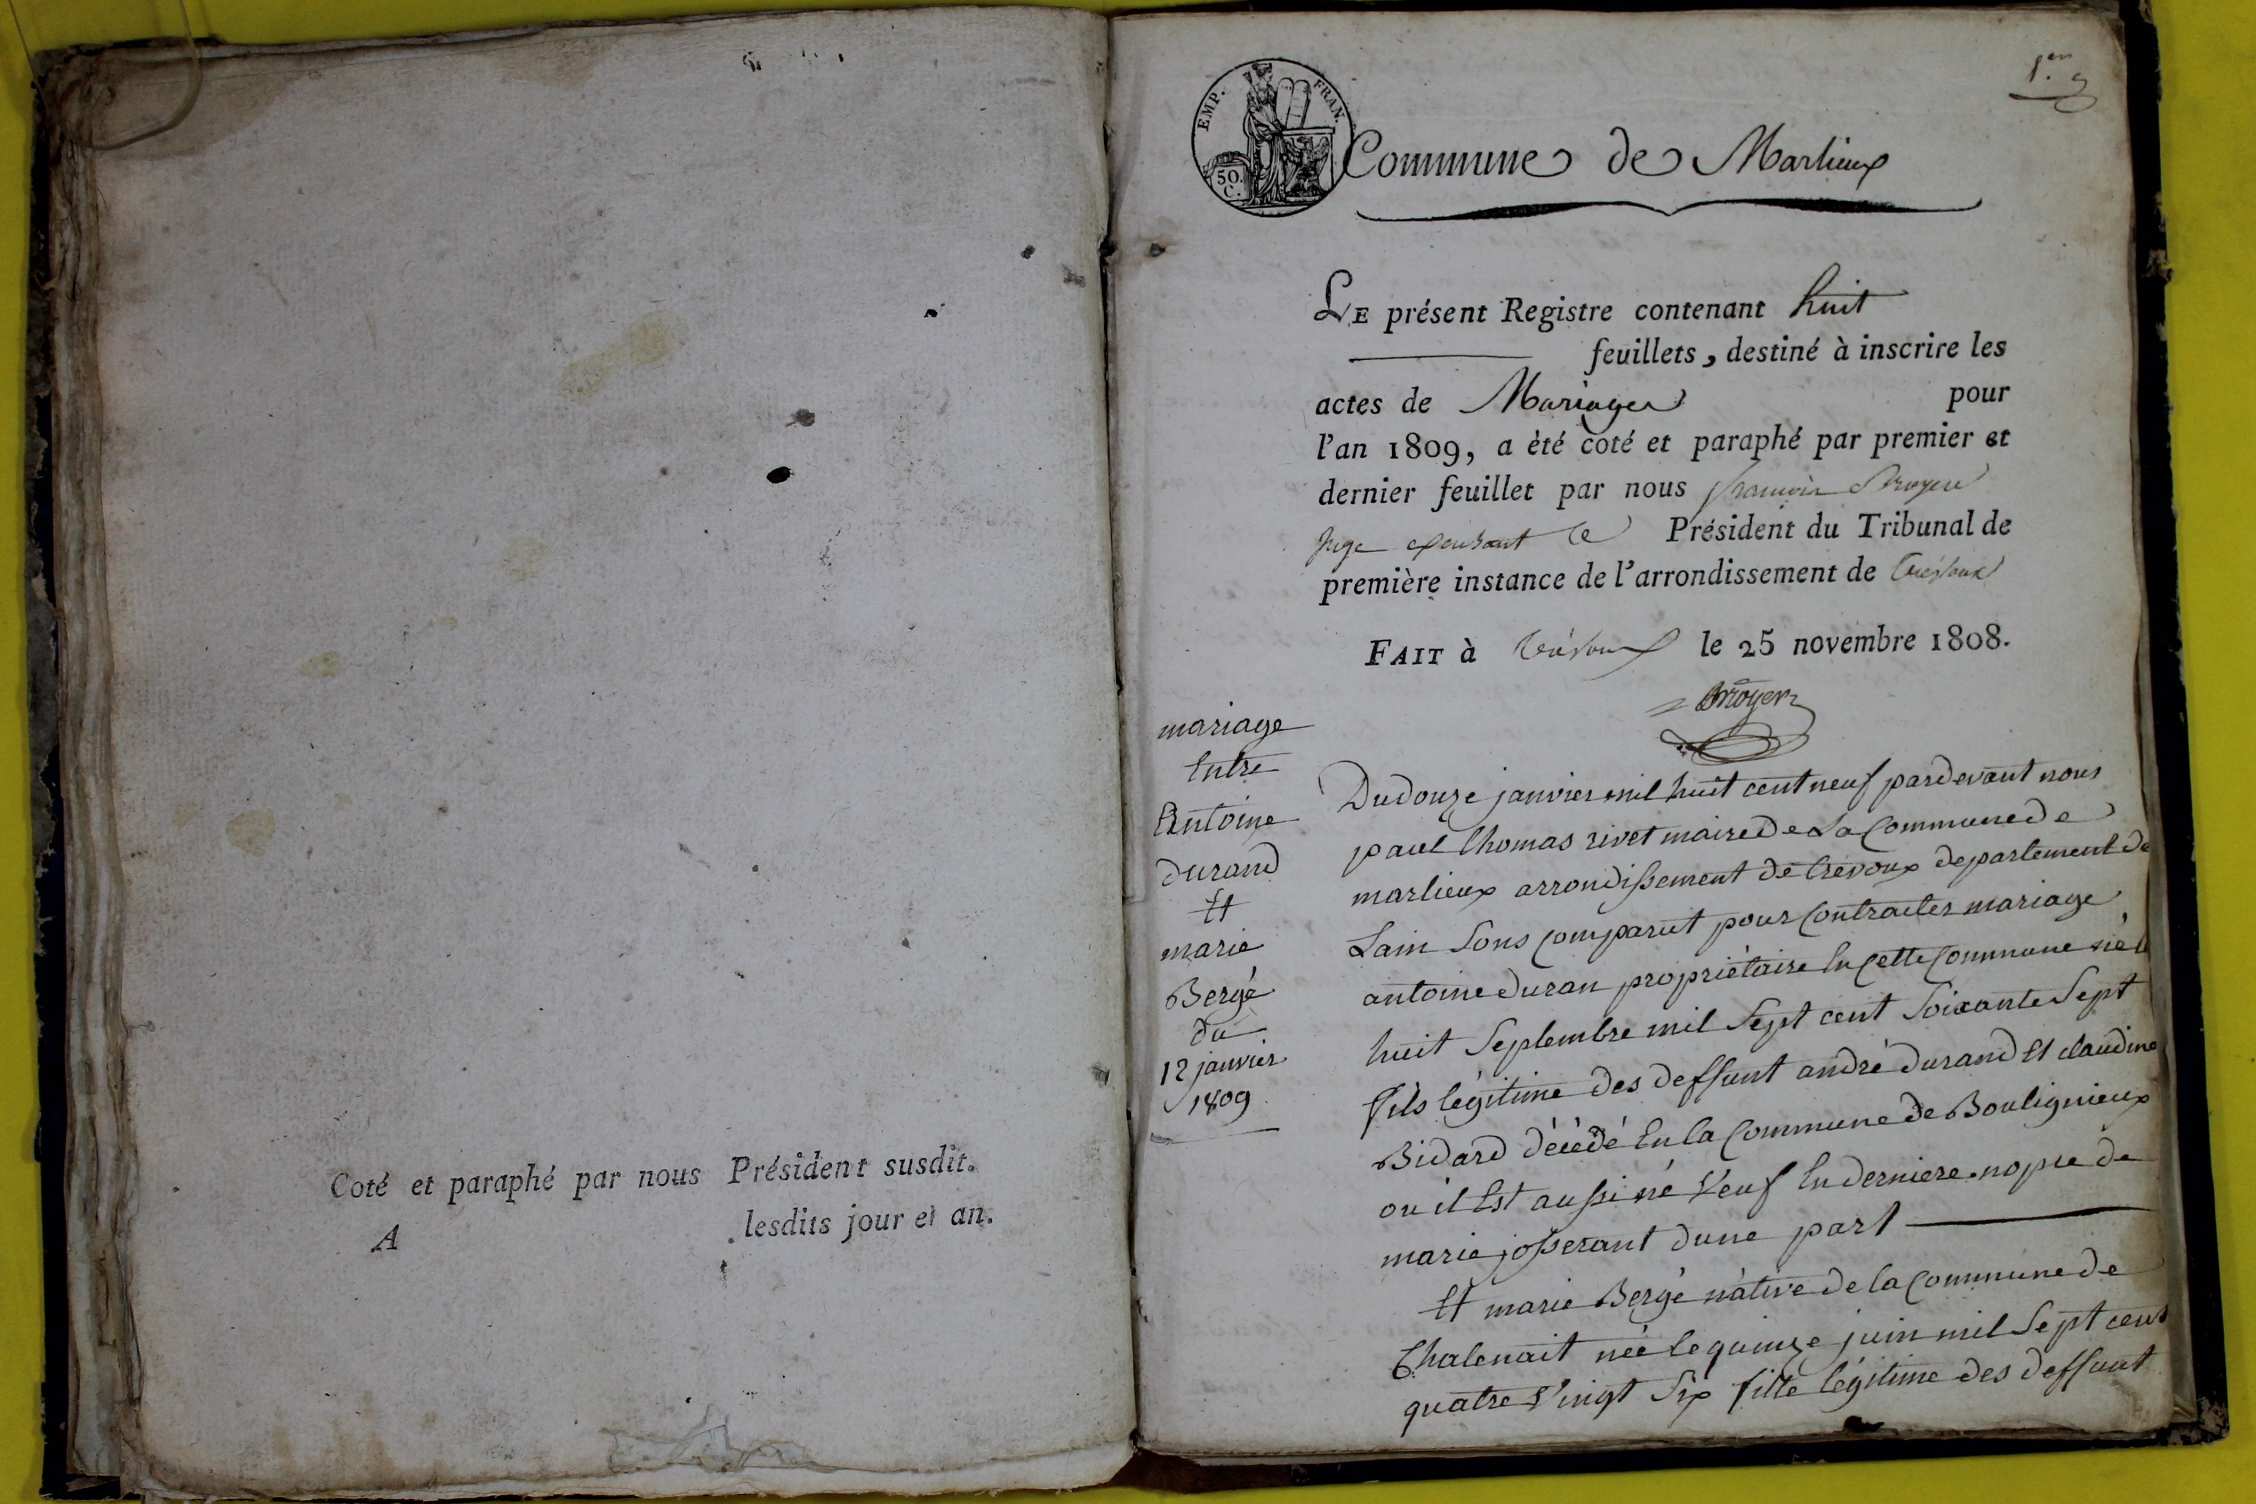 Coté et paraphé par nous Président susdit.
A lesdits jour et an.
1.er
EMP. FRAN.
50.
C.
Commune de Marlieux
LE présent Registre contenant huit
feuillets, destiné à inscrire les
actes de Mariages pour
l'an 1809, a été coté et paraphé par premier et
dernier feuillet par nous françois Broyer
Juge exerçant le Président du Tribunal de
première instance de l'arrondissement de Trévoux
FAIT à Trévoux le 25 novembre 1808.
Broyer
mariage
Entre
Antoine
durand
Et
marie
Bergé
du
12 janvier
1809
Du douze janvier mil huit cent neuf pardevant nous
paul thomas rivet maire de La Commune de
marlieux arrondissement de trévoux departement de
Lain sons comparut pour contracter mariage
antoine duran propriétaire En cette commune né le
huit septembre mil sept cent soixante sept
fils légitime des deffunt andré durand Et claudine
Bidard décédé En la Commune de Bouligneux
ou il Est aussi né veuf En derniere nopce de
marie josserant dune part
Et marie Bergé native de la commune de
Chalenait née le quinze juin mil sept cent
quatre vingt six fille légitime des deffunt